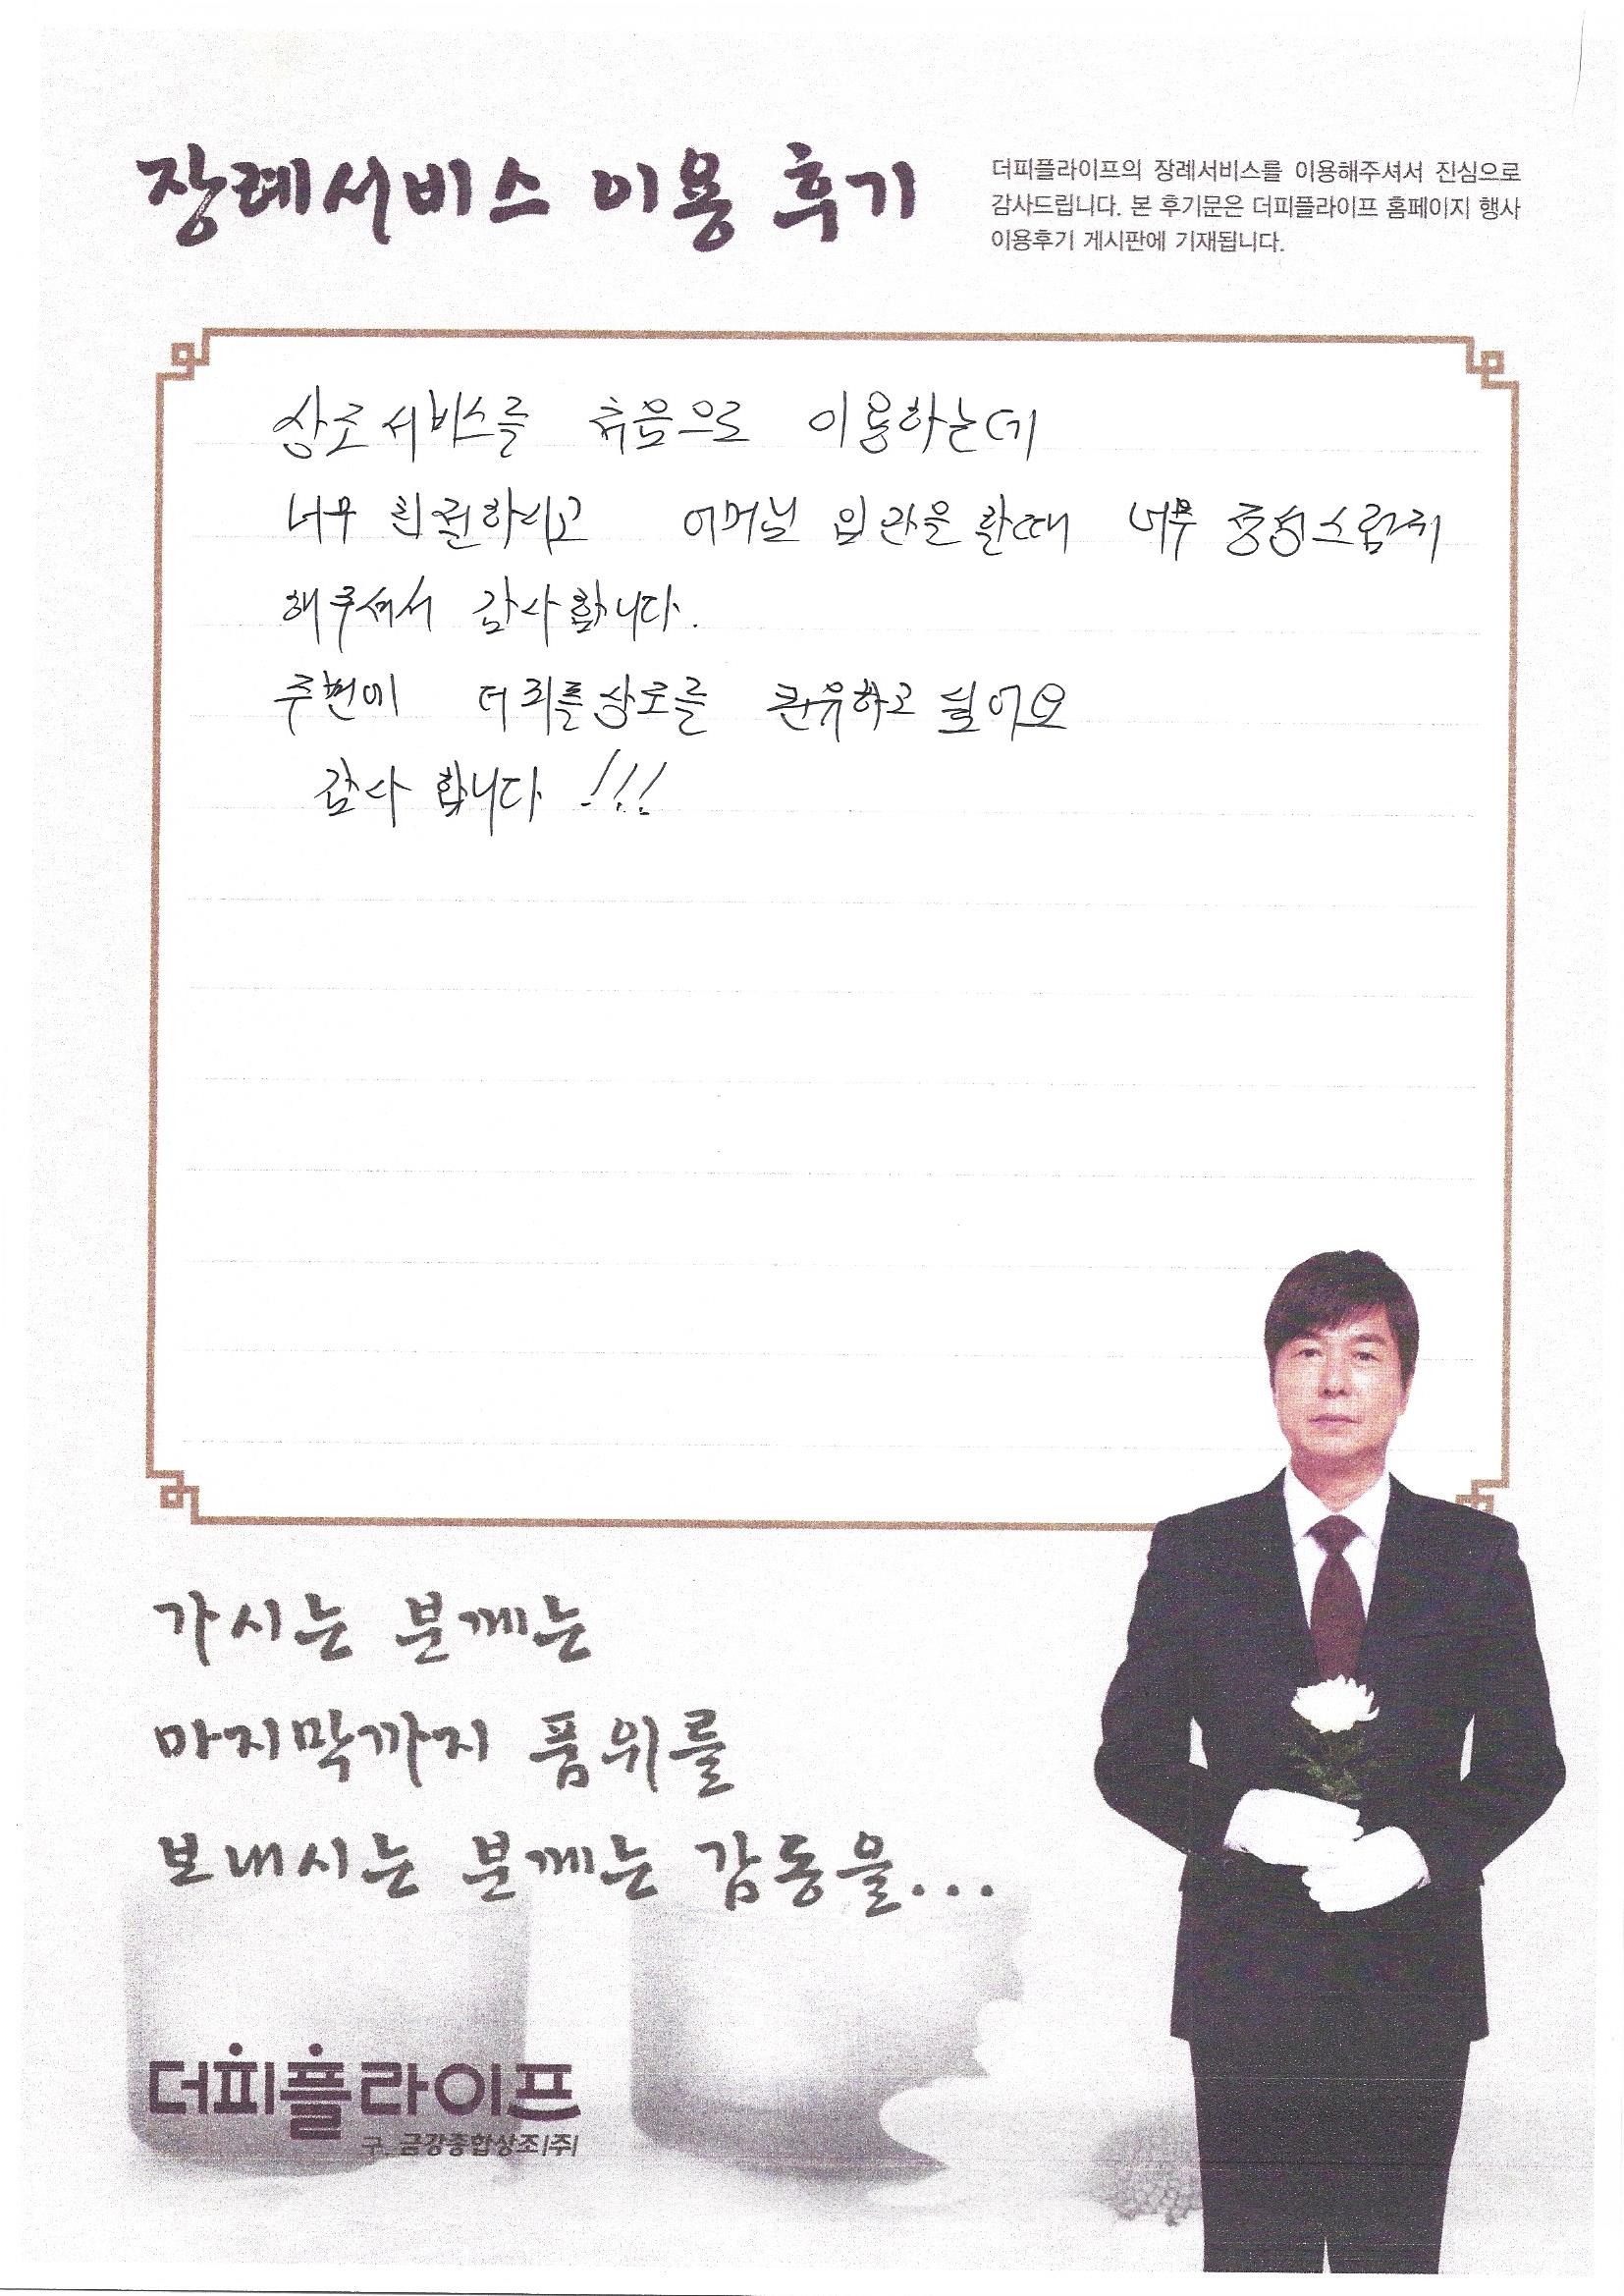 장례서비스 이용 후기
더피플라이프의 장례서비스를 이용해주셔서 진심으로
감사드립니다. 본 후기문은 더피플라이프 홈페이지 행사
이용후기 게시판에 기재됩니다.
상조서비스를 처음으로 이용하는데
너무 친절하시고 어머님 입관을 할때 너무 정성스럽게
해주셔서 감사합니다.
주변에 더피플상조를 권유하고 싶어요
감사 합니다 !!!
가시는 분께는
마지막까지 품위를
보내시는 분께는 감동을...
더피플라이프
구. 금강종합상조(주)